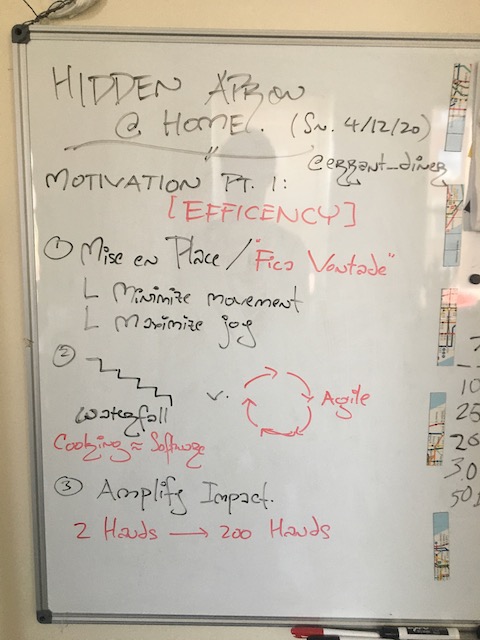 HIDDEN APRON
@ HOME. (Sn. 4/12/20)
@errant_diner
MOTIVATION PT. 1:
[EFFICENCY]
① Mise en Place / "Fica Vontade"
Minimize movement
Maximize joy
②
Waterfall v. Agile
Cooking ≈ Software
③ Amplify Impact.
2 Hands → 200 Hands
10
25
20
3.0
50